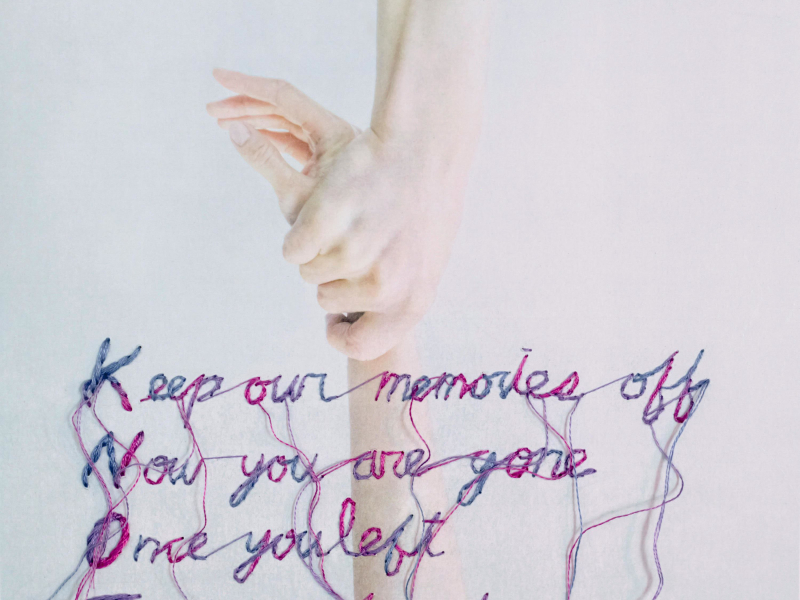 Keep our memories off
Now you are gone
Once you left